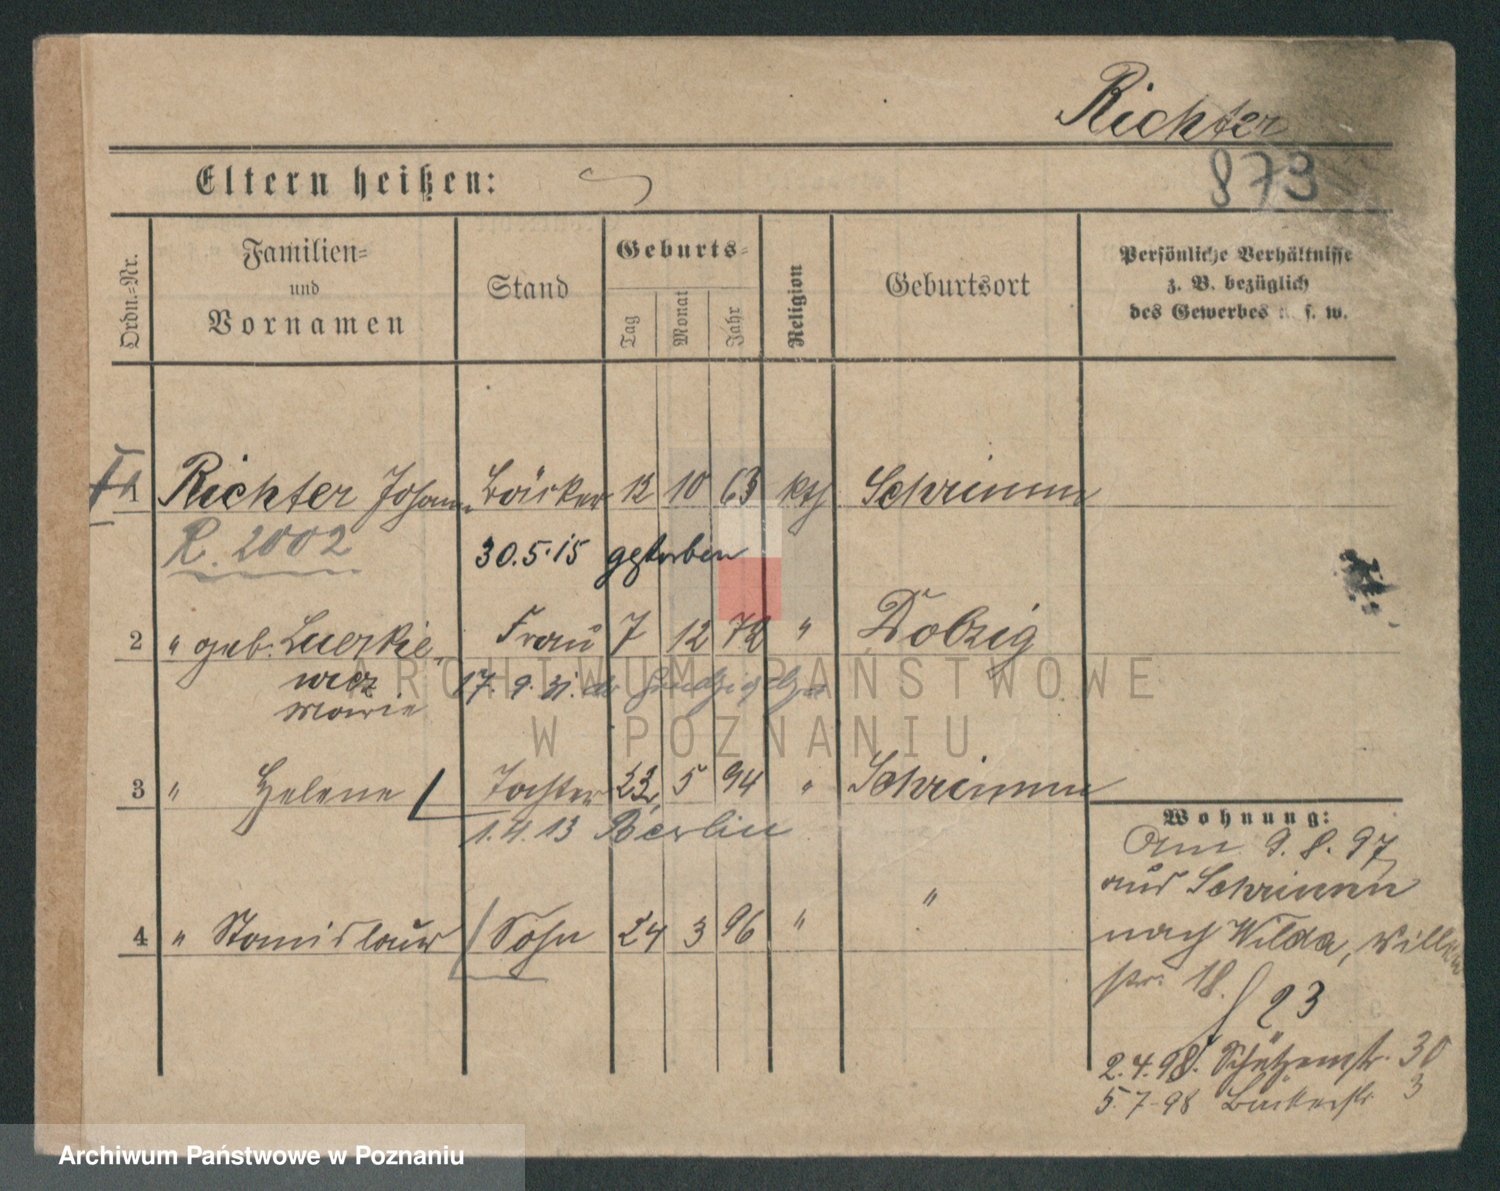 Richter
873
Eltern heißen:
Ordn.-Nr.
Familien-
und
Vornamen
Stand
Geburts-
Tag
Monat
Jahr
Religion
Geburtsort
Persönliche Verhältnisse
z. B. bezüglich
des Gewerbes u. s. w.
1 Richter Johann Bäcker 12 10 63 kth Schrimm
R. 2002
30.5.15 gestorben
2 " geb. Frau 7 12 72 " Dolzig
wicz
Marie
17. 9. 31.
3 " Helene Tochter 23 5 94 " Schrimm
1.4.13 Berlin
4 " Stanislaus Sohn 24 3 96 " "
Wohnung:
Am 9.8.97
aus Schrimm
nach Wilda,
str. 18.
23
2.4.98. Schützenstr. 30
5.7.98 Bäckerstr. 3
ARCHIWUM PAŃSTWOWE
W POZNANIU
Archiwum Państwowe w Poznaniu